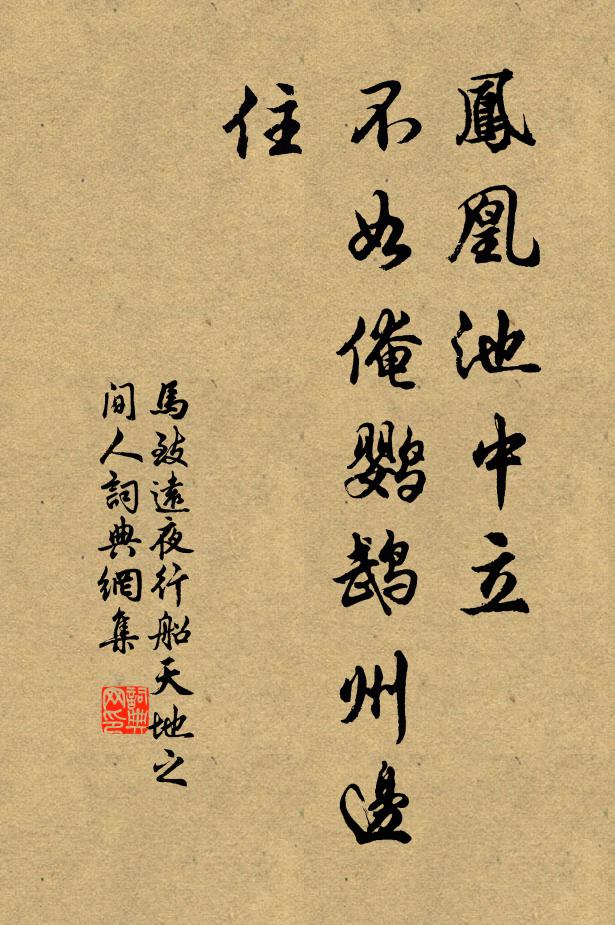 鳳凰池中立
不如俺鸚鵡州邊
住
馬致遠夜行船天地之
间人詞典網集
詞典
网印